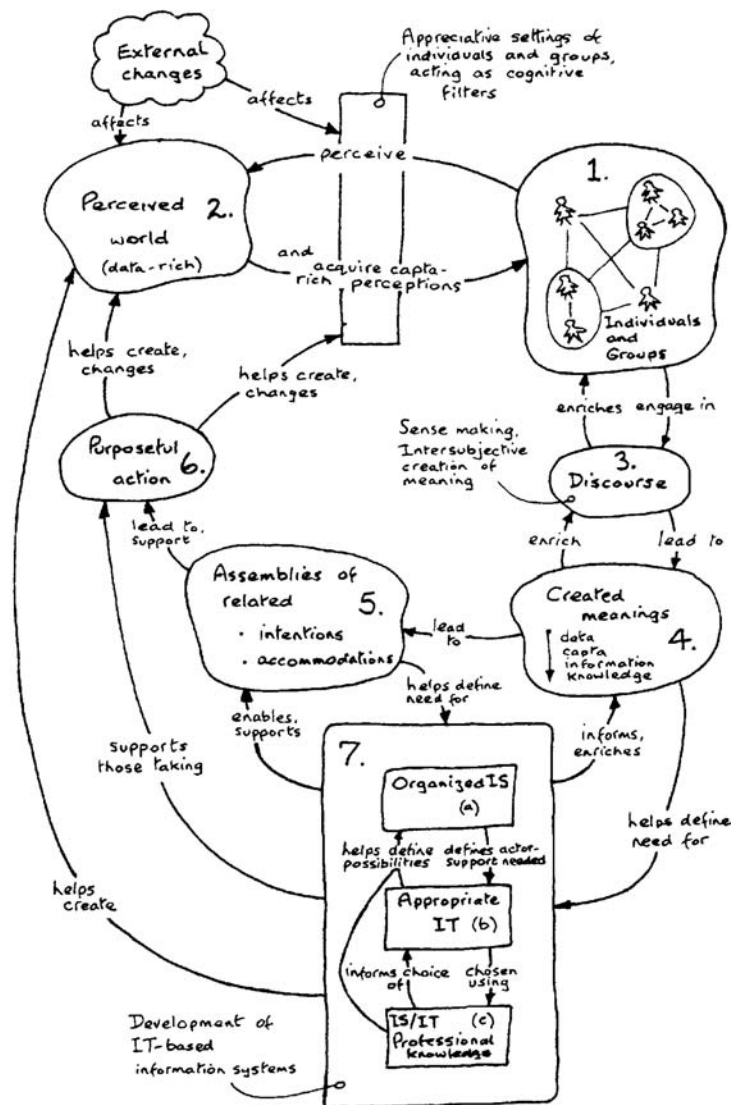 External
changes
affects
affects
Appreciative settings of
individuals and groups,
acting as cognitive
filters
perceive
1.
Perceived 2.
world
(data-rich)
and
acquire capta-
rich perceptions
Individuals
and
Groups
helps create,
changes
helps create,
changes
enriches
engage in
Purposeful
action 6.
Sense making,
Intersubjective
creation of
meaning
3.
Discourse
lead to,
support
enrich
lead to
Assemblies of
related 5.
· intentions
· accommodations
lead
to
Created
meanings
4.
data
capta
information
knowledge
helps define
need for
enables,
supports
informs,
enriches
supports
those taking
7.
Organized IS
(a)
helps define
possibilities
defines actor-
support needed
helps define
need for
helps
create
Appropriate
IT (b)
informs choice
of
chosen
using
IS/IT (c)
Professional
knowledge
Development of
IT-based
information systems